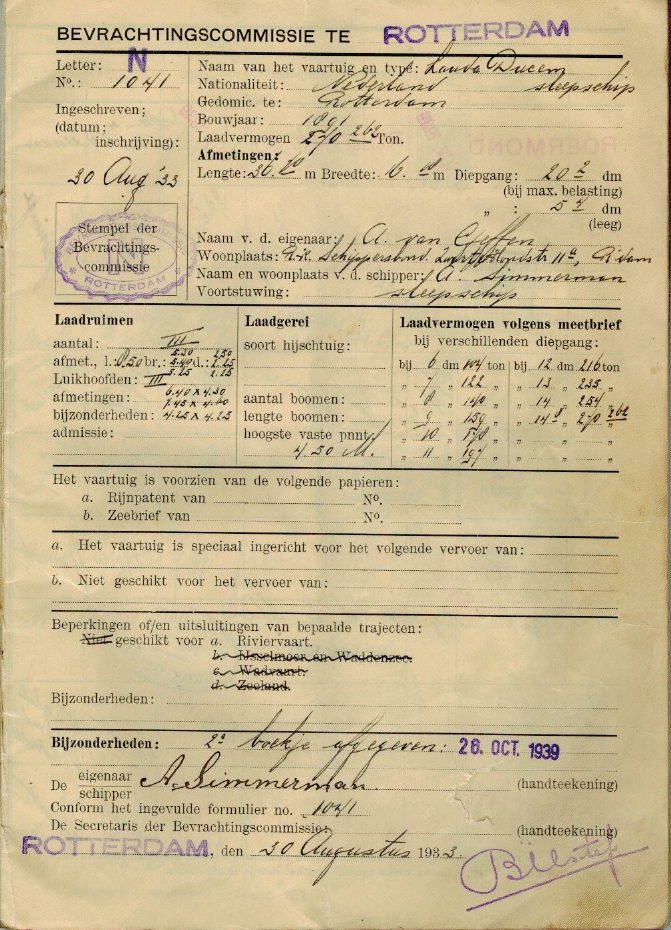 BEVRACHTINGSCOMMISSIE TE ROTTERDAM
Letter: N
No.: 1041
Ingeschreven;
(datum;
inschrijving):
30 Aug '33
Stempel der
Bevrachtings-
commissie
N
ROTTERDAM
Naam van het vaartuig en type: Lauda Ducem
Nationaliteit: Nederland sleepschip
Gedomic. te: Rotterdam
Bouwjaar: 1891
Laadvermogen 270 262 Ton.
Afmetingen:
Lengte: m Breedte: 6. m Diepgang: 20 2 dm
(bij max. belasting)
„ : 5 dm
(leeg)
Naam v. d. eigenaar: A. van Geffen
Woonplaats: 11a, R'dam
Naam en woonplaats v. d. schipper: A. Simmerman
Voortstuwing: sleepschip
Laadruimen
aantal: III
afmet., l.: br.: d.:
5.30 2.50
5.40 2.25
5.25 2.25
Luikhoofden: III
afmetingen: 6.40 x 4.30
7.45 x 4.60
bijzonderheden: 4.25 x 4.25
admissie:
Laadgerei
soort hijschtuig:
aantal boomen:
lengte boomen:
hoogste vaste pnnt:
4.50 M.
Laadvermogen volgens meetbrief
bij verschillenden diepgang:
bij 6 dm 104 ton bij 12 dm 216 ton
„ 7 „ 122 „ „ 13 „ 235 „
„ 8 „ 140 „ „ 14 „ 254 „
„ 9 „ 159 „ „ 14 8 „ 270 „ 262
„ 10 „ 178 „ „ „ „
„ 11 „ 197 „ „ „ „
Het vaartuig is voorzien van de volgende papieren:
a. Rijnpatent van No.
b. Zeebrief van No.
a. Het vaartuig is speciaal ingericht voor het volgende vervoer van:
b. Niet geschikt voor het vervoer van:
Beperkingen of/en uitsluitingen van bepaalde trajecten:
Niet geschikt voor a. Riviervaart.
b. IJsselmeer en Waddenzee.
c. Wadvaart.
d. Zeeland.
Bijzonderheden:
Bijzonderheden: 2e boekje afgegeven: 26. OCT. 1939
De eigenaar
schipper A. Simmerman (handteekening)
Conform het ingevulde formulier no. 1041
De Secretaris der Bevrachtingscommissie: (handteekening)
ROTTERDAM, den 30 Augustus 1933